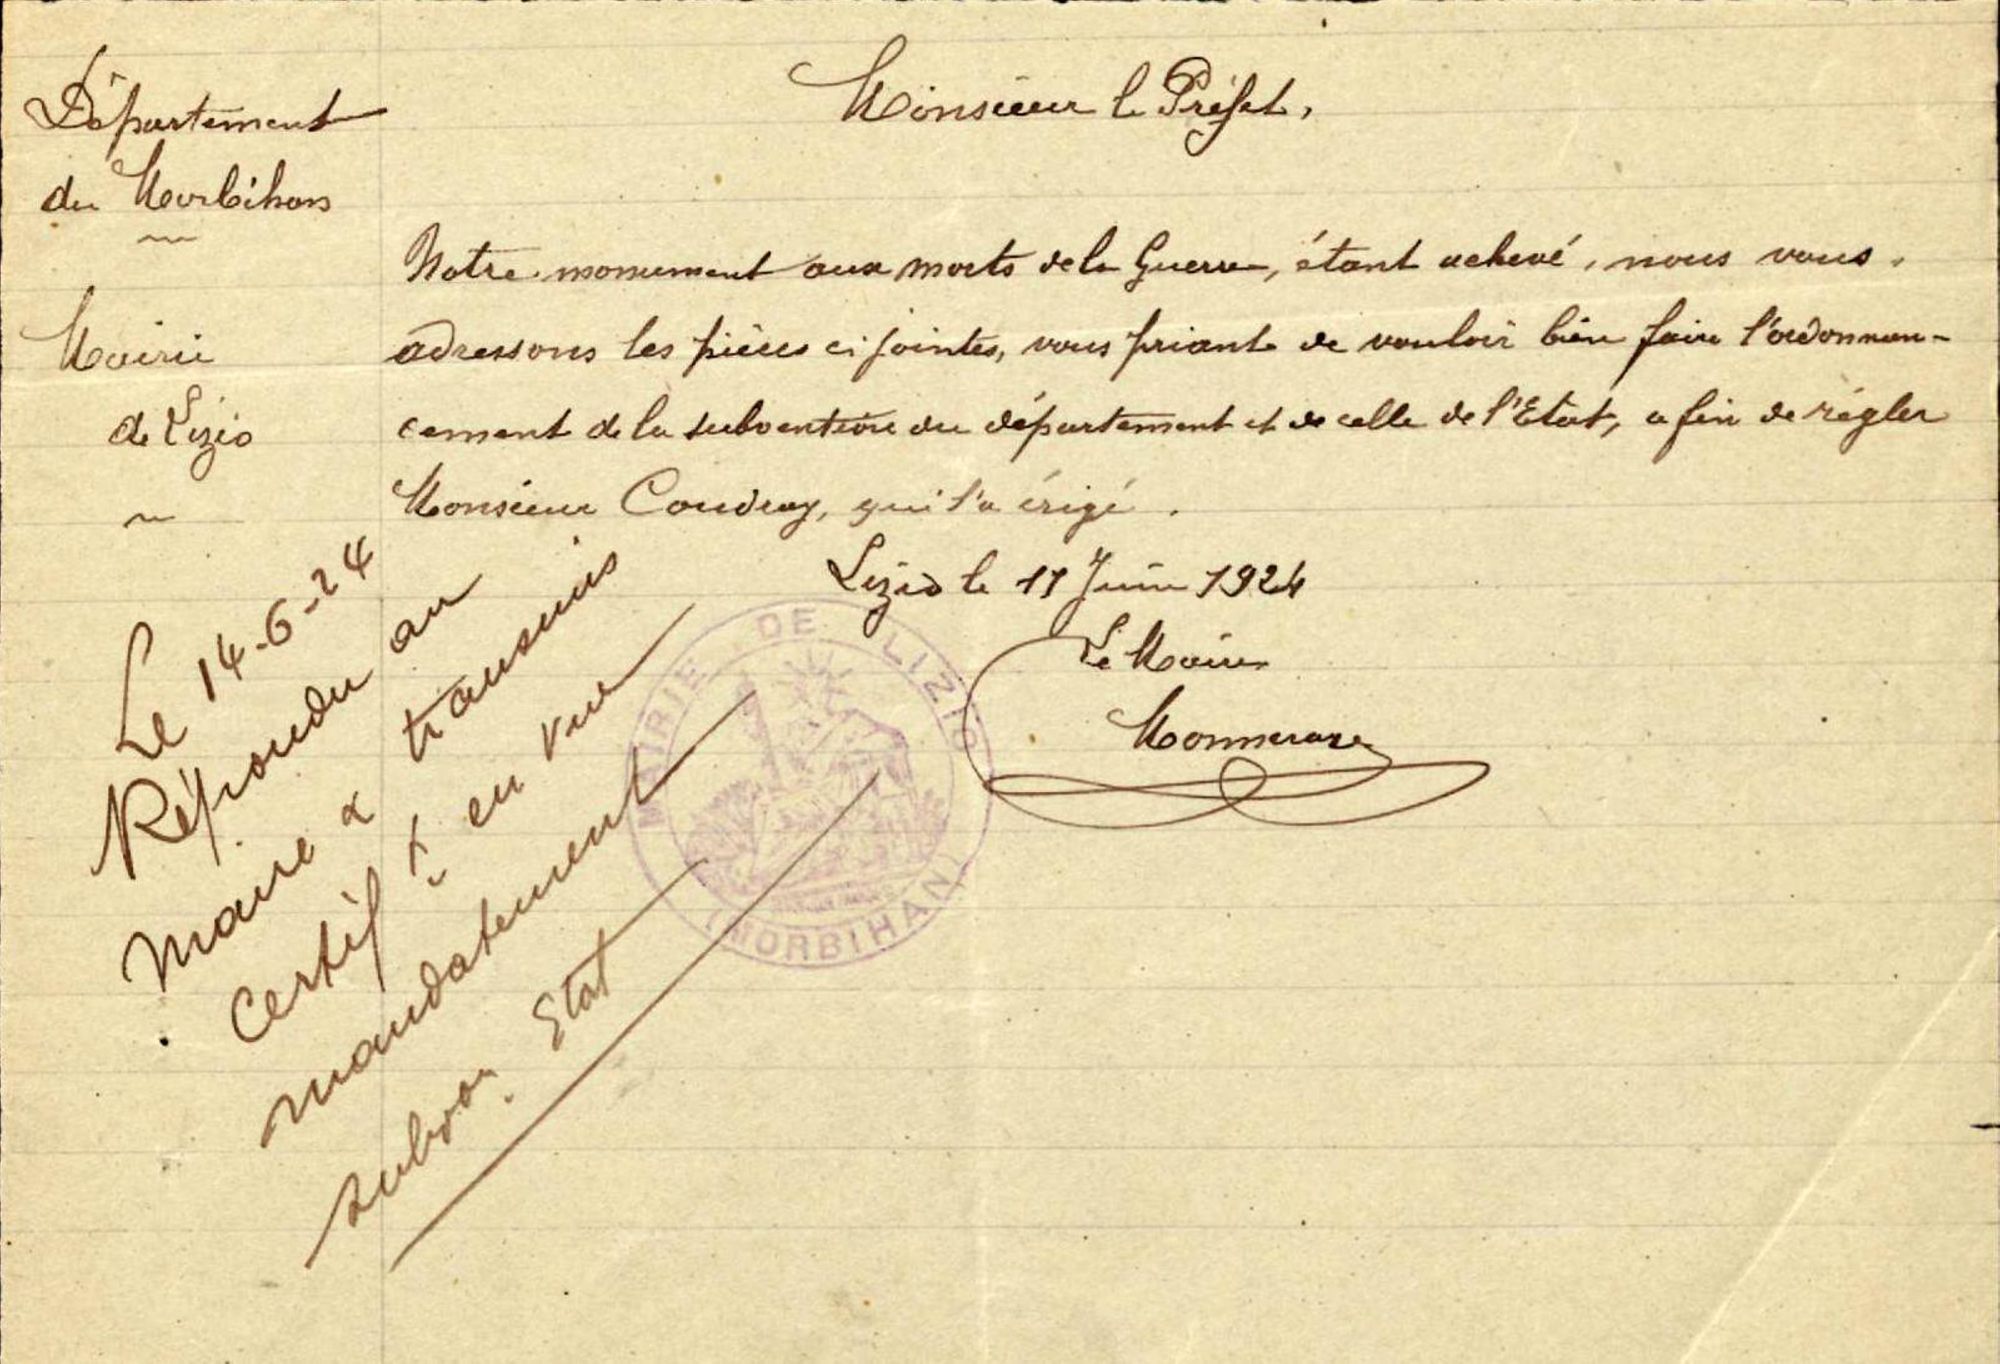 Département
du Morbihan
Mairie
de Lizio
Monsieur le Préfet,
Notre monument aux morts de la Guerre, étant achevé, nous vous
adressons les pièces ci jointes, vous priant de vouloir bien faire l'ordonnan-
cement de la subvention du département et de celle de l'Etat, afin de régler
Monsieur Coudray, qui l'a érigé.
Lizio le 11 Juin 1924
Le Maire
MAIRIE DE LIZIO
(MORBIHAN)
Le 14-6-24
Répondu au
maire & transmis
certif t en vue
mandatement
subvon Etat